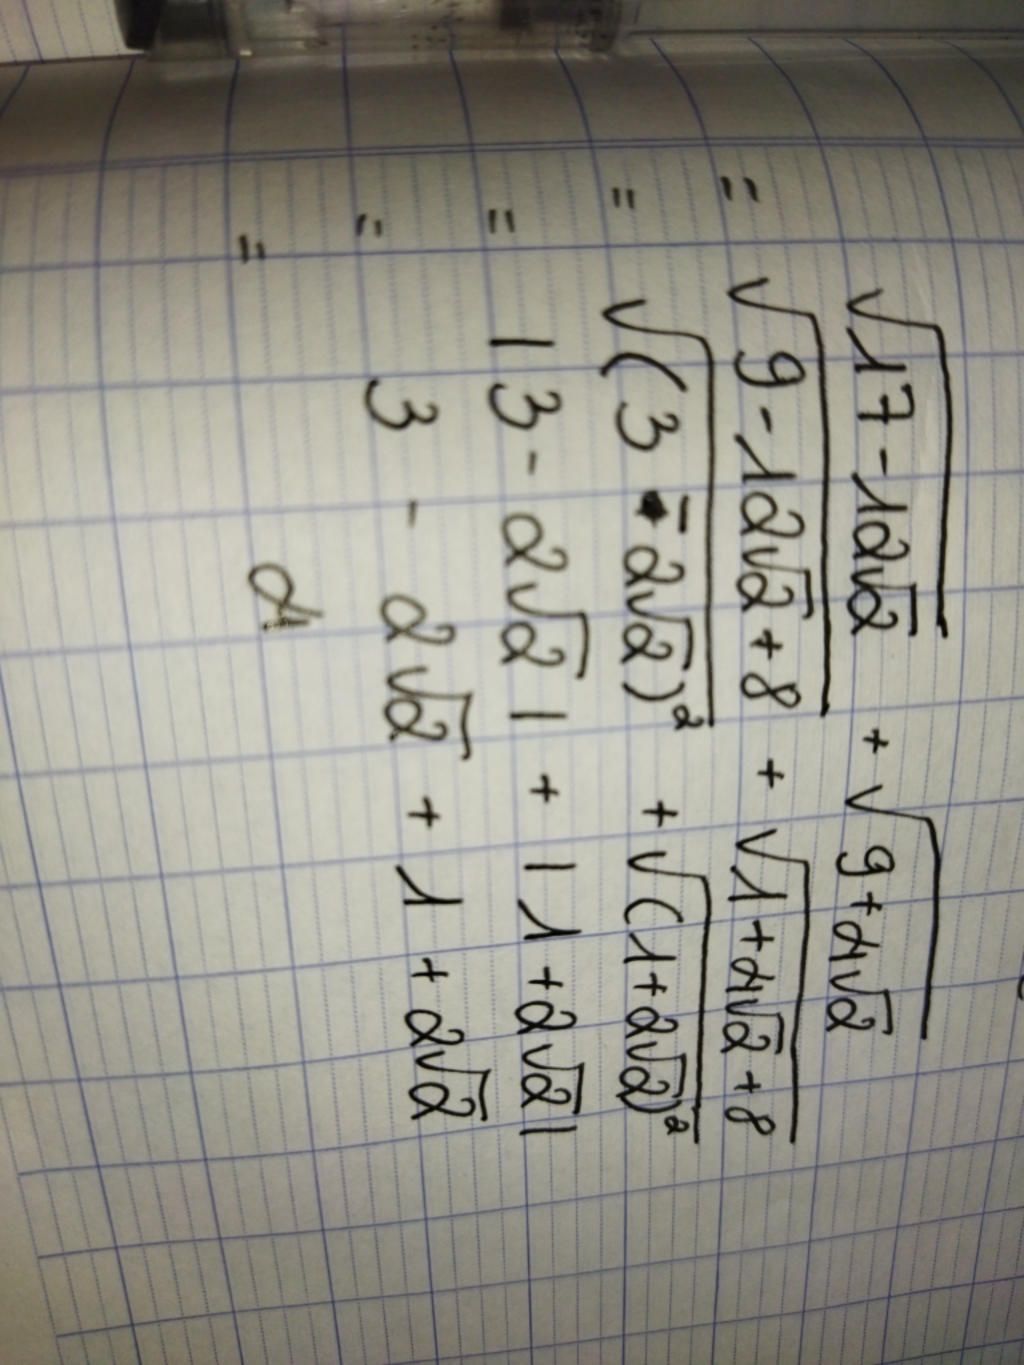 √(17 - 12√2) + √(9 + 4√2)
= √(9 - 12√2 + 8) + √(1 + 4√2 + 8)
= √((3 - 2√2)²) + √((1 + 2√2)²)
= |3 - 2√2| + |1 + 2√2|
= 3 - 2√2 + 1 + 2√2
= 4